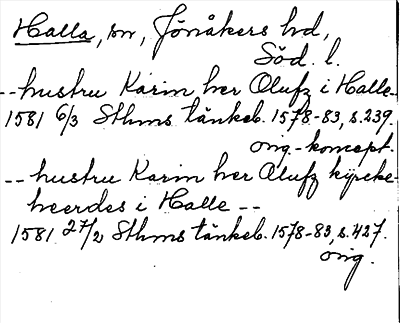 Halla, sn, Jönåkers hd,
Söd. l.
-- hustru Karin her Olufz i Halle --
1581 6/3 Sthms tänkeb. 1578-83, s. 239.
orig.-koncept.
-- hustru Karin her Olufz kyrcke-
heerdes i Halle --
1581 27/2 Sthms tänkeb. 1578-83, s. 427.
orig.